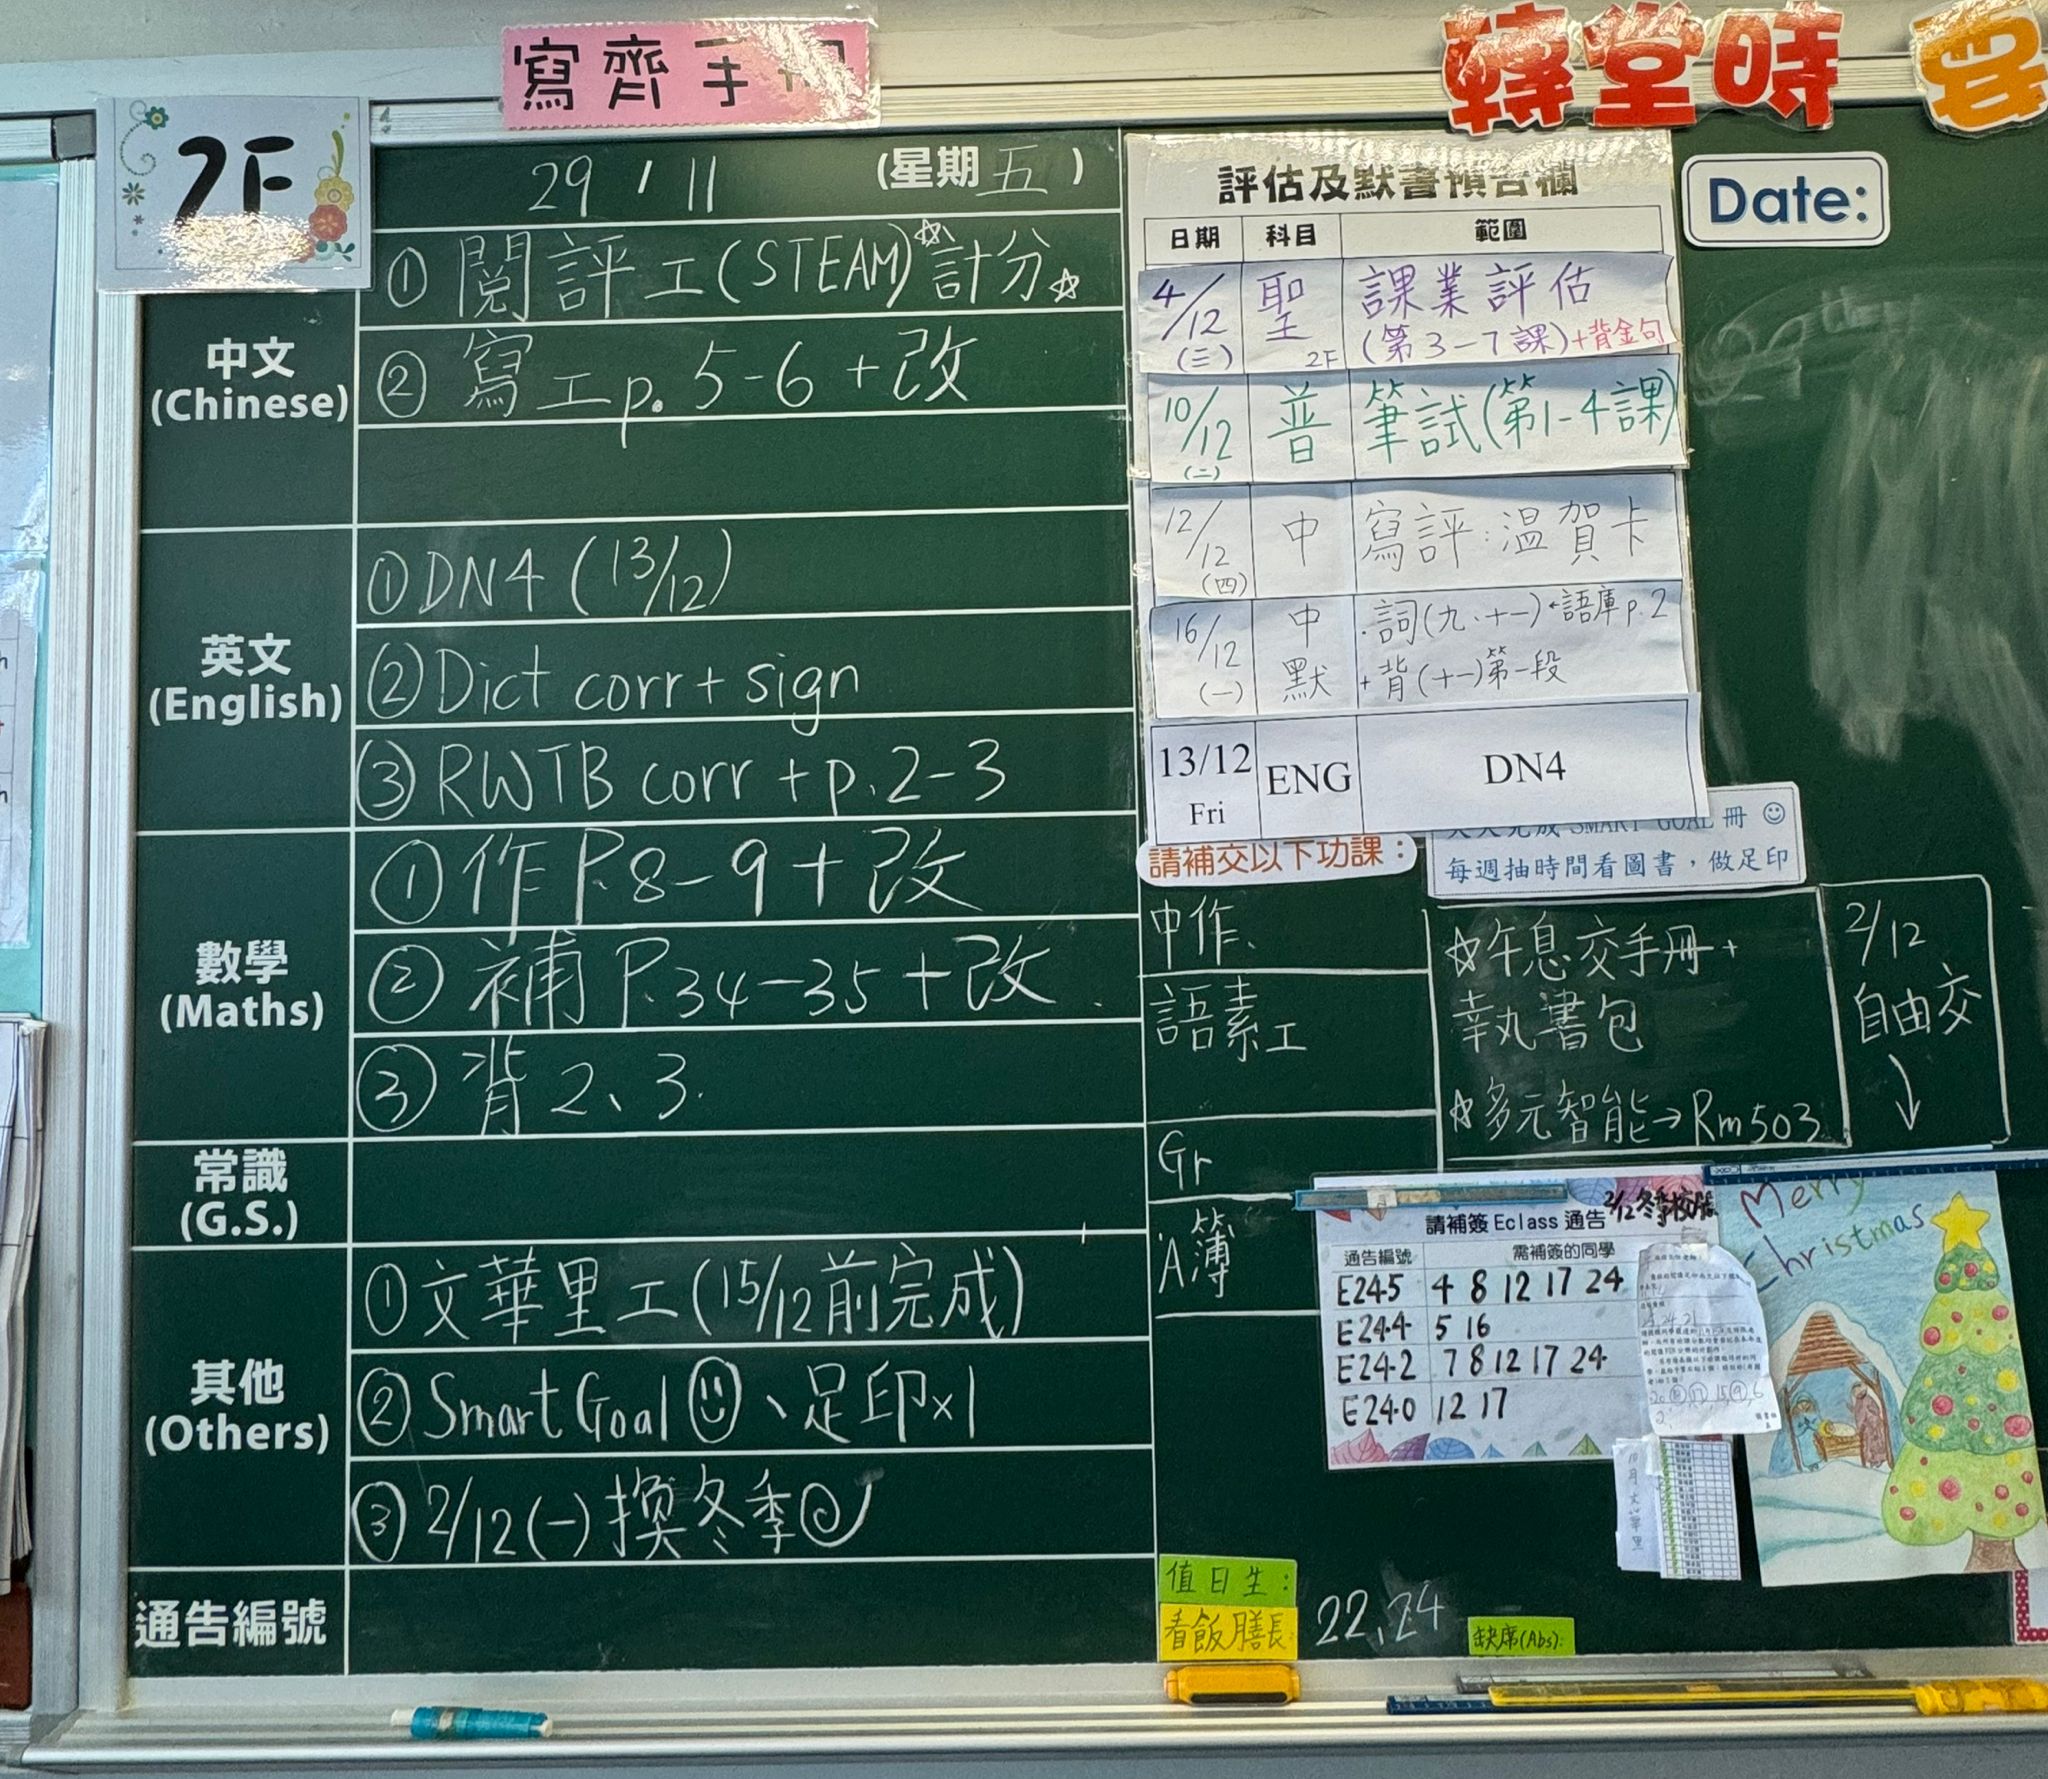 寫齊手
轉堂時
2F
29 / 11 (星期五)
中文
(Chinese)
① 閱評工(STEAM)☆計分☆
② 寫工p. 5-6 + 改
英文
(English)
① DN4 (13/12)
② Dict corr + sign
③ RWTB corr + p.2-3
數學
(Maths)
① 作 P.8-9 + 改
② 補 P.34-35 + 改
③ 背 2、3.
常識
(G.S.)
其他
(Others)
① 文華里工(15/12前完成)
② Smart Goal、足印×1
③ 2/12(一)換冬季
通告編號
評估及默書預告欄
日期 科目 範圍
4/12 (三) 聖 2F 課業評估
(第3-7課)+背金句
10/12 (二) 普 筆試(第1-4課)
12/12 (四) 中 寫評:溫賀卡
16/12 (一) 中默 .詞(九、十一)·語庫p.2
+背(十一)第一段
13/12 Fri ENG DN4
Date:
請補交以下功課:
SMART GOAL 冊 ☺
每週抽時間看圖書，做足印
中作、
語素工
Gr
A簿
☆午息交手冊+
執書包
☆多元智能→Rm503
2/12
自由交
↓
2/12冬季校服
請補簽 Eclass 通告
通告編號 需補簽的同學
E245 4 8 12 17 24
E244 5 16
E242 7 8 12 17 24
E240 12 17
Merry
Christmas
值日生:
看飯膳長 22、24
缺席(Abs):